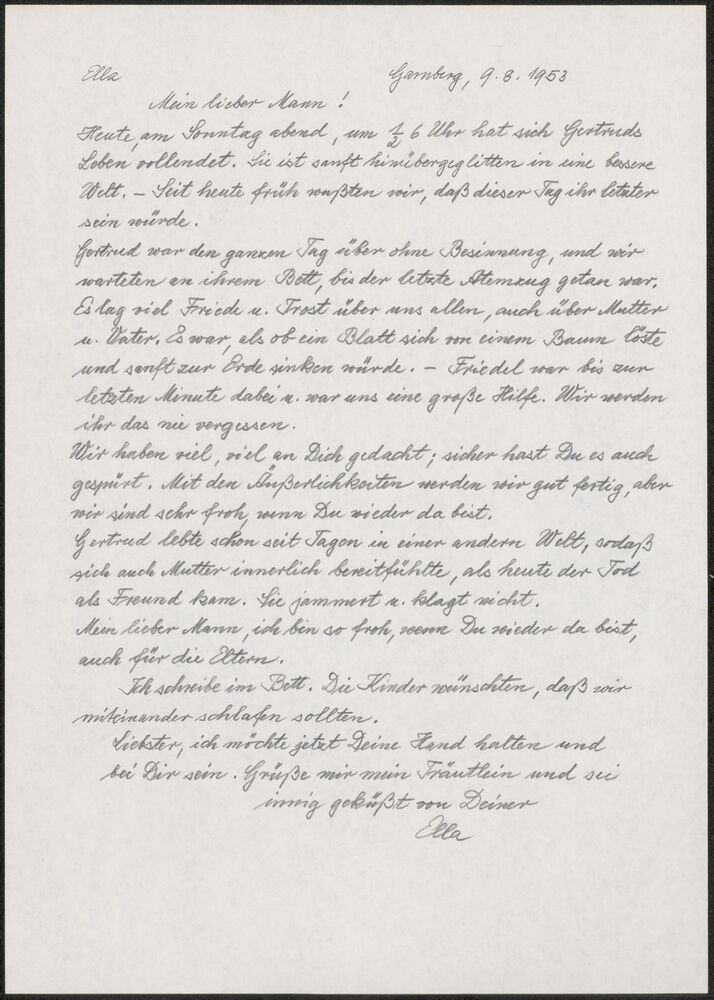 Ella Garnberg, 9.8.1953
Mein lieber Mann!
Heute, am Sonntag abend, um 1/2 6 Uhr hat sich Gertruds
Leben vollendet. Sie ist sanft hinübergeglitten in eine bessere
Welt. – Seit heute früh wußten wir, daß dieser Tag ihr letzter
sein würde.
Gertrud war den ganzen Tag über ohne Besinnung, und wir
warteten an ihrem Bett, bis der letzte Atemzug getan war.
Es lag viel Friede u. Trost über uns allen, auch über Mutter
u. Vater. Es war, als ob ein Blatt sich von einem Baum löste
und sanft zur Erde sinken würde. – Friedel war bis zur
letzten Minute dabei u. war uns eine große Hilfe. Wir werden
ihr das nie vergessen.
Wir haben viel, viel an Dich gedacht; sicher hast Du es auch
gespürt. Mit den Äußerlichkeiten werden wir gut fertig, aber
wir sind sehr froh, wenn Du wieder da bist.
Gertrud lebte schon seit Tagen in einer andern Welt, sodaß
sich auch Mutter innerlich bereitfühlte, als heute der Tod
als Freund kam. Sie jammert u. klagt nicht.
Mein lieber Mann, ich bin so froh, wenn Du wieder da bist,
auch für die Eltern.
Ich schreibe im Bett. Die Kinder wünschten, daß wir
miteinander schlafen sollten.
Liebster, ich möchte jetzt Deine Hand halten und
bei Dir sein. Grüße mir mein Träutlein und sei
innig geküßt von Deiner
Ella